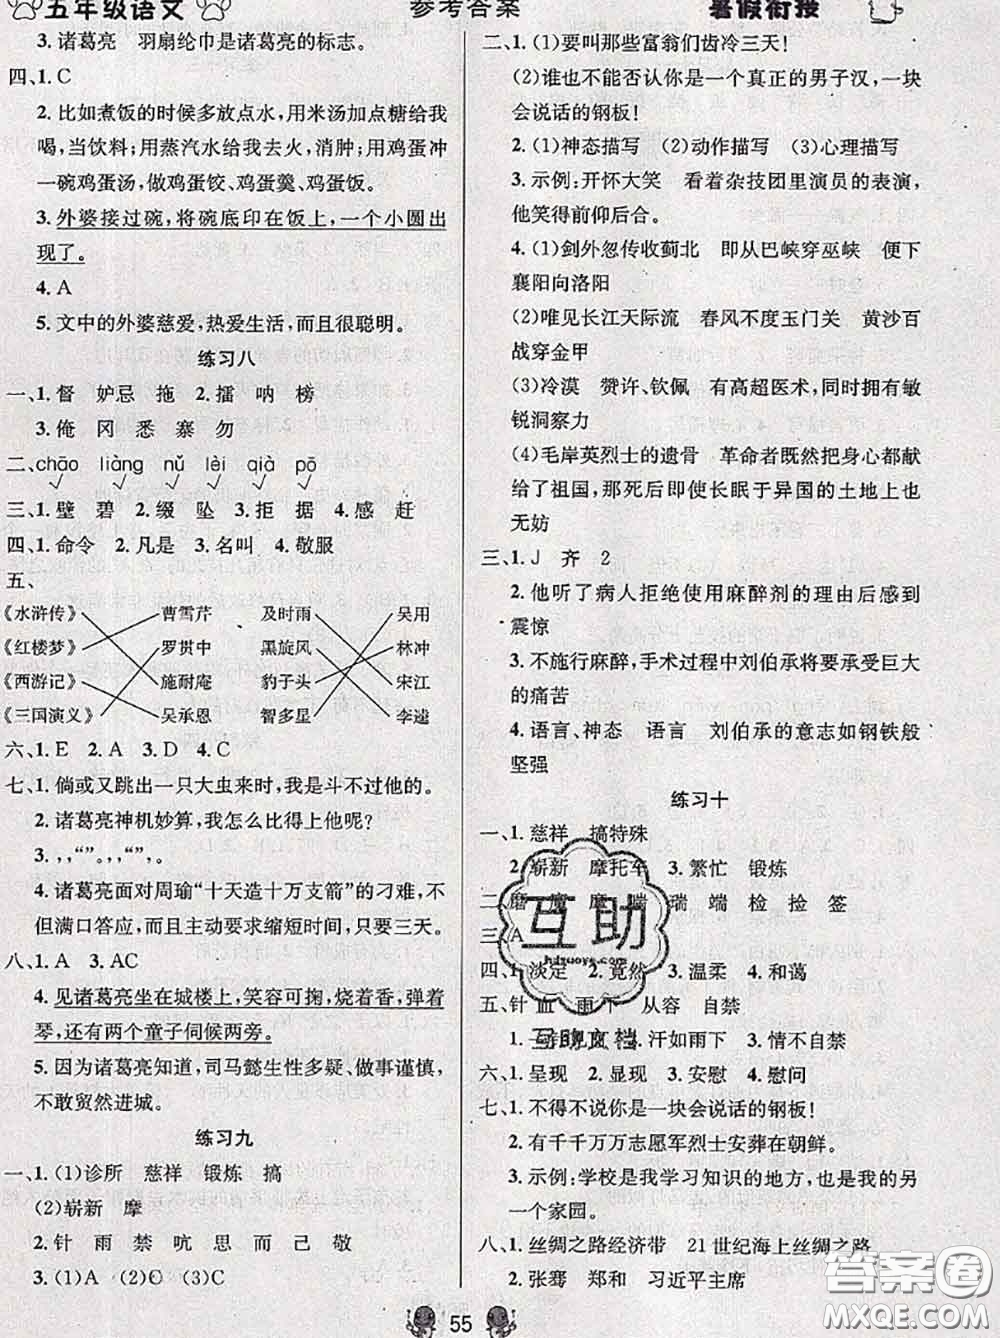 五年级语文
参考答案
暑假衔接
3. 诸葛亮 羽扇纶巾是诸葛亮的标志。
四、1. C
2. 比如煮饭的时候多放点水,用米汤加点糖给我
喝,当饮料;用蒸汽水给我去火,消肿;用鸡蛋冲
一碗鸡蛋汤,做鸡蛋饺、鸡蛋羹、鸡蛋饭。
3. 外婆接过碗,将碗底印在饭上,一个小圆出
现了。
4. A
5. 文中的外婆慈爱,热爱生活,而且很聪明。
练习八
一、1. 督 妒忌 拖 2. 擂 呐 榜
3. 俺 冈 悉 寨 勿
二、chāo liàng nǔ lèi qià pō
三、1. 壁 碧 2. 缀 坠 3. 拒 据 4. 感 赶
四、1. 命令 2. 凡是 3. 名叫 4. 敬服
五、
《水浒传》 曹雪芹 及时雨 吴用
《红楼梦》 罗贯中 黑旋风 林冲
《西游记》 施耐庵 豹子头 宋江
《三国演义》 吴承恩 智多星 李逵
六、1. E 2. A 3. D 4. C
七、1. 倘或又跳出一只大虫来时,我是斗不过他的。
2. 诸葛亮神机妙算,我怎么比得上他呢?
3. ,,“”。,“”,。
4. 诸葛亮面对周瑜“十天造十万支箭”的刁难,不但
满口答应,而且主动要求缩短时间,只要三天。
八、1. A 3. AC
4. 见诸葛亮坐在城楼上,笑容可掬,烧着香,弹着
琴,还有两个童子伺候两旁。
5. 因为诸葛亮知道,司马懿生性多疑、做事谨慎,
不敢贸然进城。
练习九
一、1. (1)诊所 慈祥 锻炼 搞
(2)崭新 摩
2. 针 雨 禁 吭 思 而 己 敬
3. (1)A (2)C (3)C
二、1. (1)要叫那些富翁们齿冷三天!
(2)谁也不能否认你是一个真正的男子汉,一块
会说话的钢板!
2. (1)神态描写 (2)动作描写 (3)心理描写
3. 示例:开怀大笑 看着杂技团里演员的表演,
他笑得前仰后合。
4. (1)剑外忽传收蓟北 即从巴峡穿巫峡 便下
襄阳向洛阳
(2)唯见长江天际流 春风不度玉门关 黄沙百
战穿金甲
(3)冷漠 赞许、钦佩 有高超医术,同时拥有敏
锐洞察力
(4)毛岸英烈士的遗骨 革命者既然把身心都献
给了祖国,那死后即使长眠于异国的土地上也
无妨
三、1. J 齐 2
2. 他听了病人拒绝使用麻醉剂的理由后感到
震惊
3. 不施行麻醉,手术过程中刘伯承将要承受巨大
的痛苦
4. 语言、神态 语言 刘伯承的意志如钢铁般
坚强
练习十
一、1. 慈祥 搞特殊
2. 崭新 摩托车 3. 繁忙 锻炼
二、磨 魔 摩 喘 瑞 端 检 捡 签
三、A
四、1. 淡定 2. 竟然 3. 温柔 4. 和蔼
五、针 血 雨 下 从容 自禁
1. 一针见血 2. 汗如雨下 3. 情不自禁
六、1. 呈现 2. 显现 3. 安慰 4. 慰问
七、1. 不得不说你是一块会说话的钢板!
2. 有千千万万志愿军烈士安葬在朝鲜。
3. 示例:学校是我学习知识的地方,也是我的另
一个家园。
八、1. 丝绸之路经济带 21世纪海上丝绸之路
2. 张骞 郑和 习近平主席
55
互助
hdzuoye.com
互助文档
答案圈
MXQE.COM